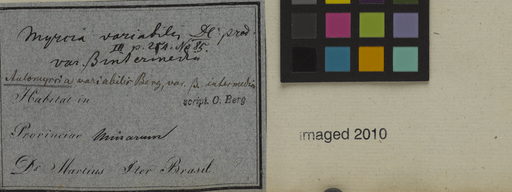 Myrcia variabilis DC. prod.
III p. 254. No 85.
var. β intermedia
Automyrcia variabilis Berg, var. β. intermedia
Habitat in
script. O. Berg
Provinciae Minarum
Dr Martius Iter Brasil
imaged 2010